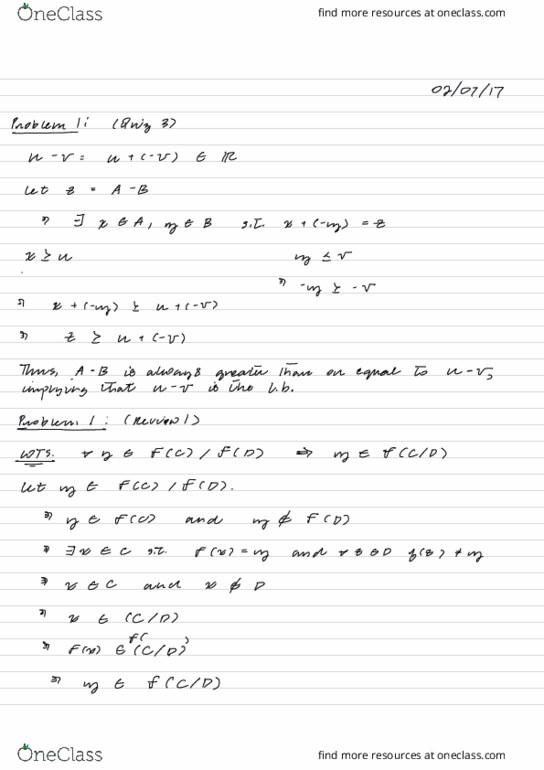 OneClass
find more resources at oneclass.com
02/07/17
Problem 1: (Quiz 3)
u - v = u + (-v) ∈ ℝ
Let z = A - B
⇒ ∃ x ∈ A, y ∈ B s.t. x + (-y) = z
x ≥ u y ≤ v
⇒ -y ≥ -v
⇒ x + (-y) ≥ u + (-v)
⇒ z ≥ u + (-v)
Thus, A - B is always greater than or equal to u - v,
implying that u - v is the l.b.
Problem 1: (Review 1)
WTS. ∀ y ∈ F(C) / f(D) ⇒ y ∈ f(C/D)
Let y ∈ F(C) / F(D).
⇒ y ∈ f(C) and y ∉ F(D)
⇒ ∃ x ∈ C s.t. f(x) = y and ∀ z ∈ D f(z) ≠ y
⇒ x ∈ C and x ∉ D
⇒ x ∈ (C/D)
⇒ F(x) ∈ f(C/D)
⇒ y ∈ f(C/D)
OneClass
find more resources at oneclass.com